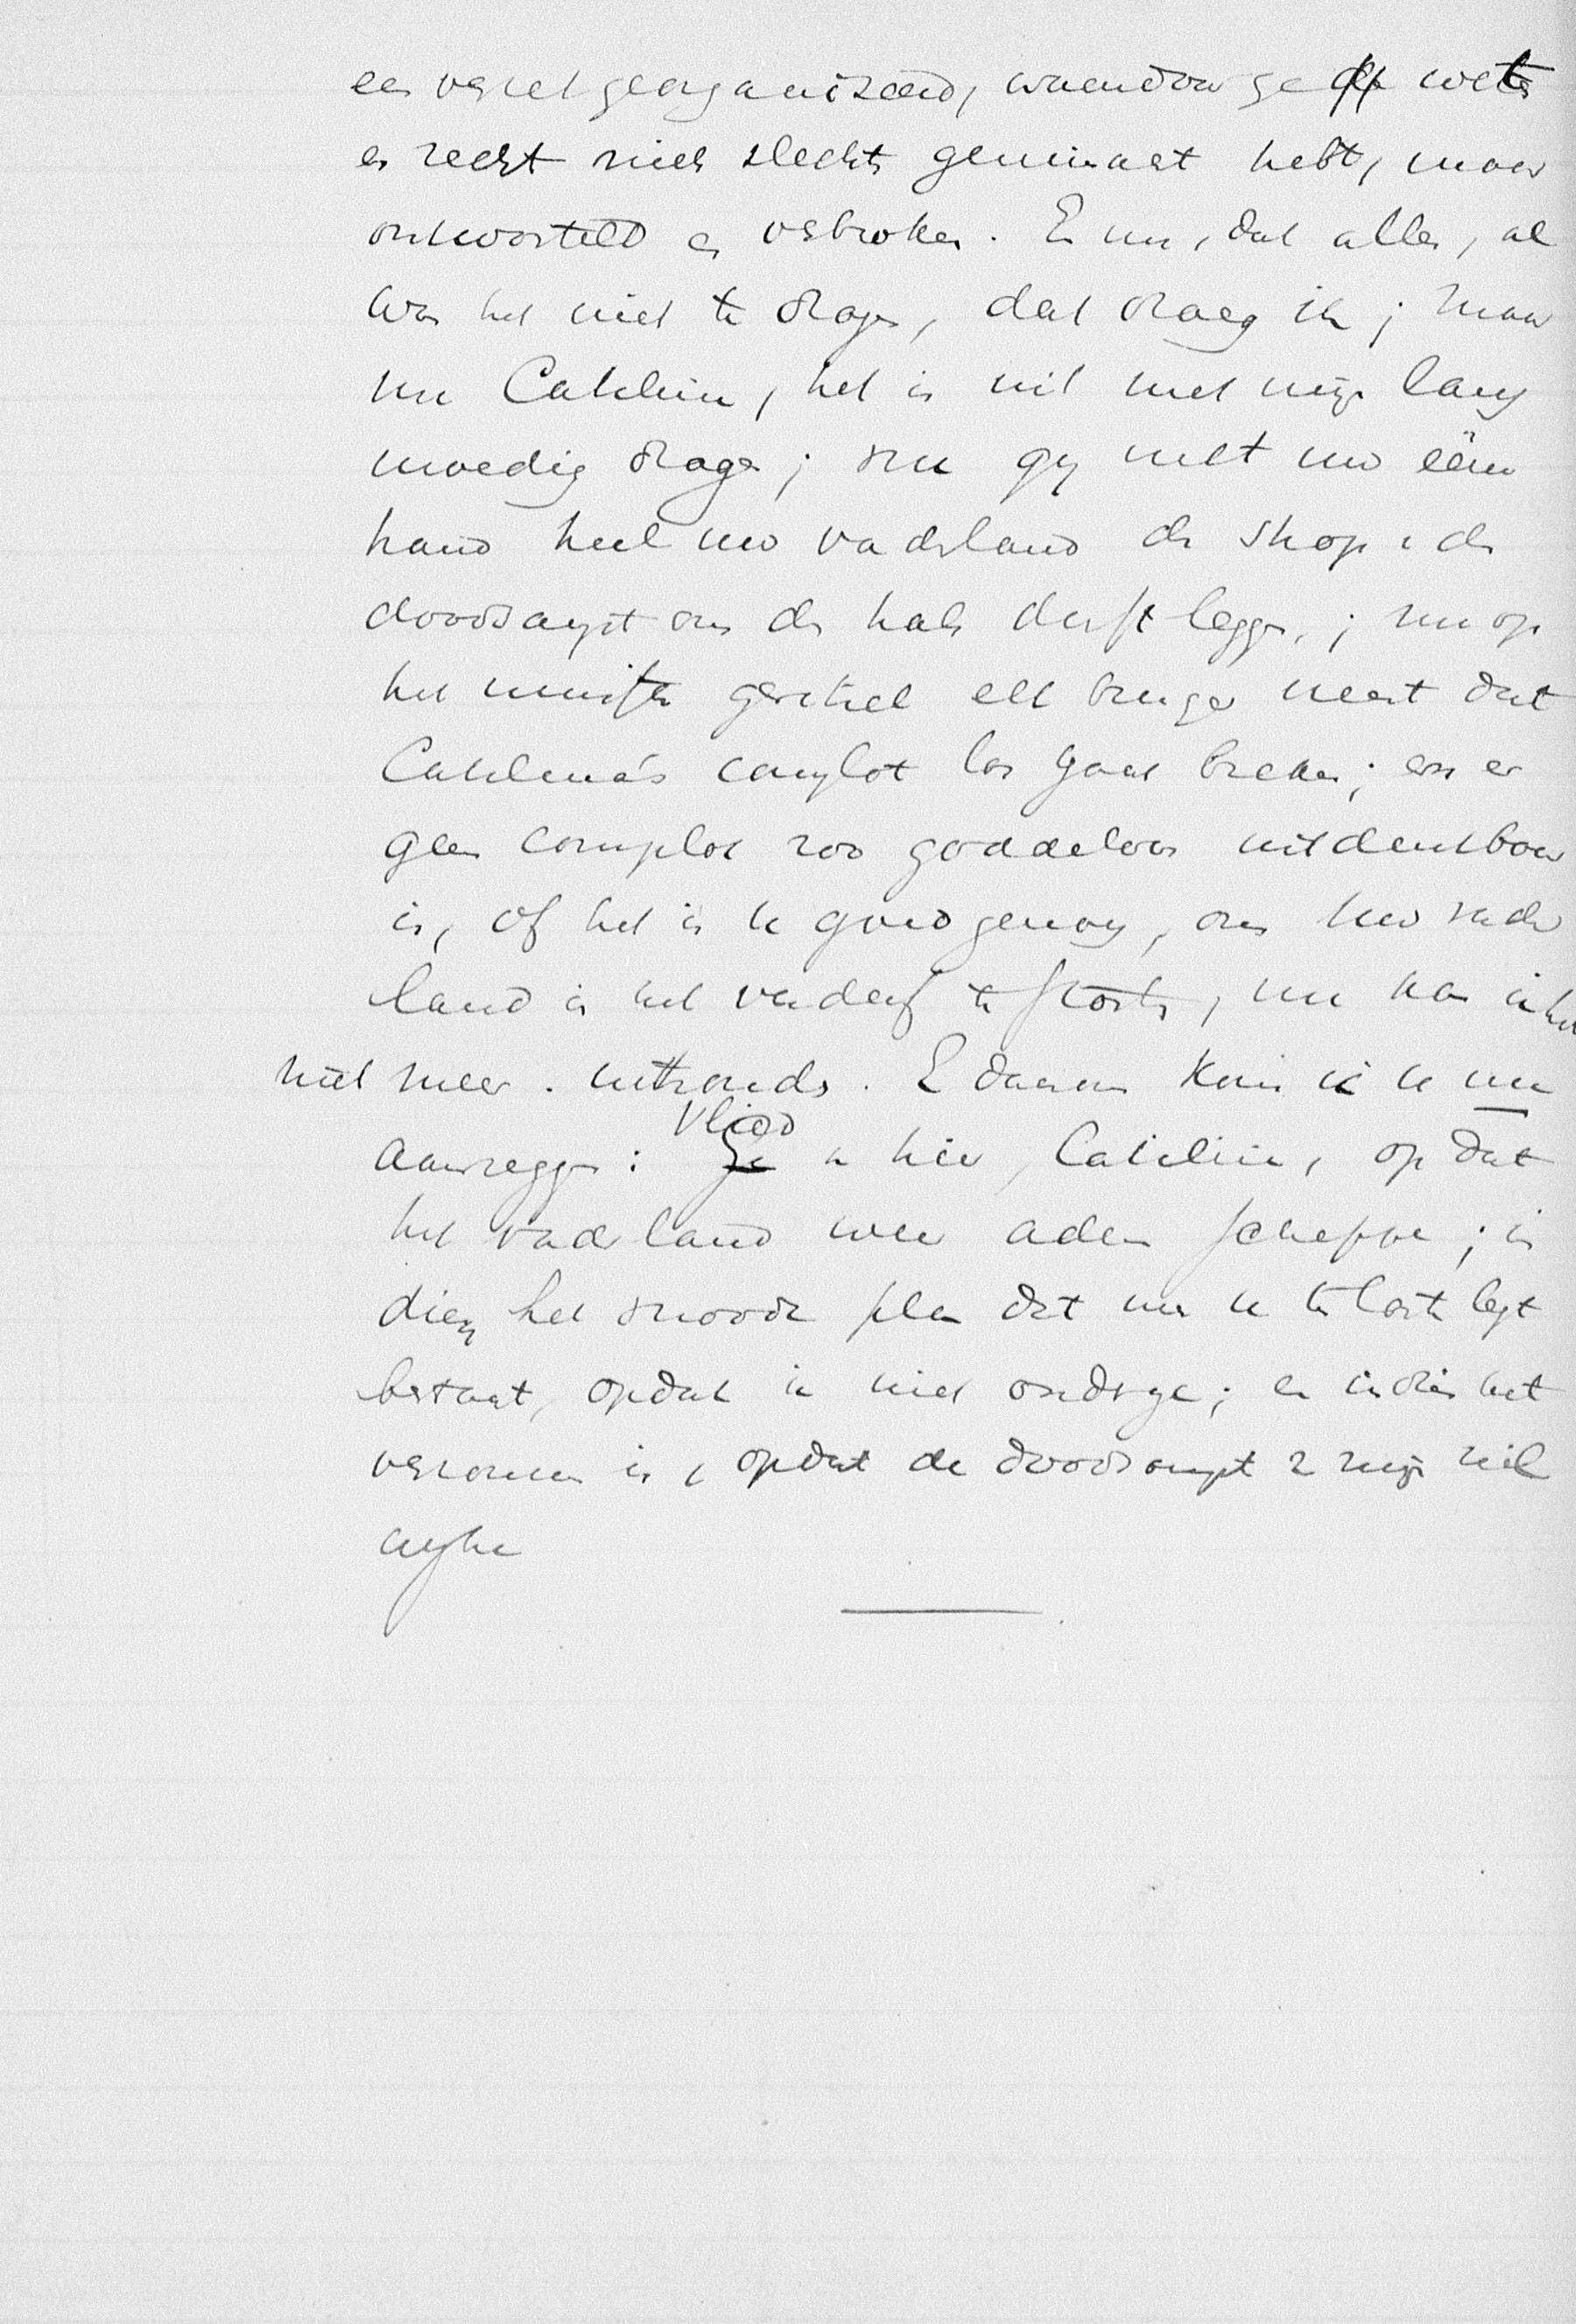 een verzet georganizeerd, waardoor ge wetten
en recht niet slechts geminact hebt, maar
ontworteld en verbroken. En nu, dat alles, al
was het niet te dragen, dat draag ik; maar
nu Catilina, het is uit met mijn lang
moedig dragen; nu gij met uw één
hand heel uw vaderland den strop en den
doodsangst om den hals derft leggen; nu op
het minste geritsel elk burger meent dat
Catilina's complot los gaat breken; en er
geen complot zoo goddeloos uitdenkbaar
is, of het is u goed genoeg, om uw vader
land in het verderf te storten, nu kan ik het
niet meer uithouden. En daarom kom ik u nu
aanzeggen: Vlied u hier, Catilina, opdat
het vaderland weer adem scheppe; in
dien het snoode plan dat men u te laste legt
bestaat, opdat ik niet onderga; en indien het
verzonnen is, opdat de doodsangst uit mijn ziel
wijke